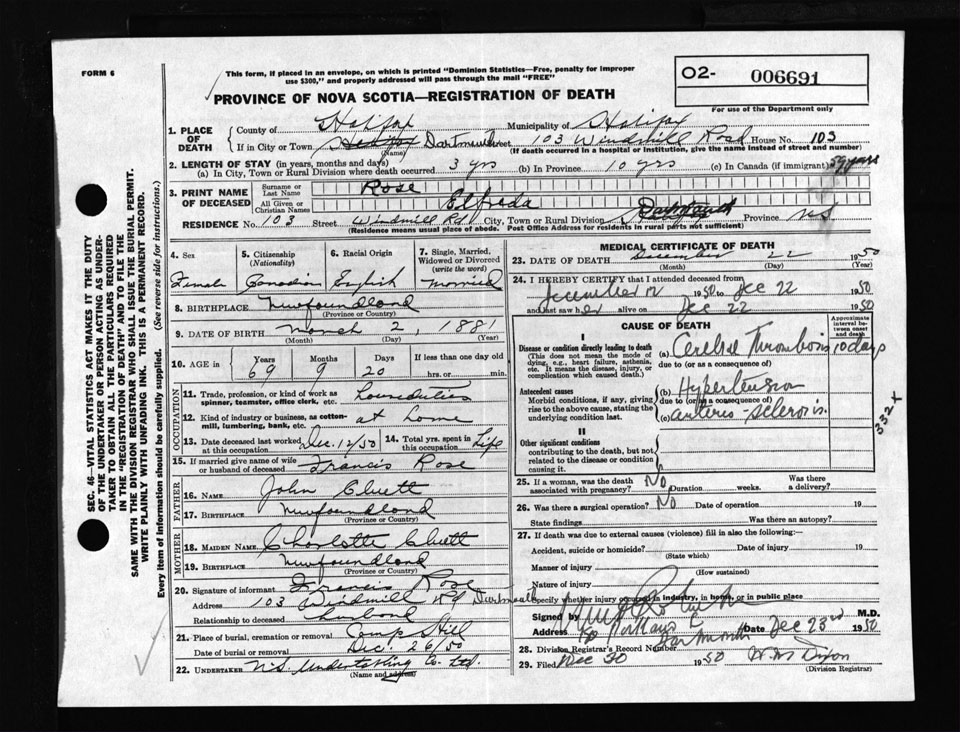 FORM 6
This form, if placed in an envelope, on which is printed "Dominion Statistics—Free, penalty for improper
use $300," and properly addressed will pass through the mail "FREE"
O2- 006691
For use of the Department only
PROVINCE OF NOVA SCOTIA—REGISTRATION OF DEATH
1. PLACE OF DEATH { County of Halifax Municipality of Halifax
If in City or Town Halifax Dartmouth Street 103 Windmill Road House No. 103
(Name) (If death occurred in a hospital or institution, give the name instead of street and number)
2. LENGTH OF STAY (in years, months and days)
(a) In City, Town or Rural Division where death occurred 3 yrs (b) In Province 10 yrs (c) In Canada (if immigrant) years
3. PRINT NAME OF DECEASED { Surname or Last Name Rose
All Given or Christian Names Elfreda
RESIDENCE No. 103 Street Windmill Rd City, Town or Rural Division Province N.S.
(Residence means usual place of abode. Post Office Address for residents in rural parts not sufficient)
4. Sex Female
5. Citizenship (Nationality) Canadian
6. Racial Origin English
7. Single, Married, Widowed or Divorced (write the word) Married
8. BIRTHPLACE Newfoundland
(Province or Country)
9. DATE OF BIRTH March 2, 1881
(Month) (Day) (Year)
10. AGE in Years 69 Months 9 Days 20 If less than one day old hrs. or min.
OCCUPATION
11. Trade, profession, or kind of work as spinner, teamster, office clerk, etc. Houseduties
12. Kind of industry or business, as cotton-mill, lumbering, bank, etc. at home
13. Date deceased last worked at this occupation Dec. 12/50
14. Total yrs. spent in this occupation Life
15. If married give name of wife or husband of deceased Francis Rose
FATHER
16. NAME John Cluett
17. BIRTHPLACE Newfoundland
(Province or Country)
MOTHER
18. MAIDEN NAME Charlotte Cluett
19. BIRTHPLACE Newfoundland
(Province or Country)
20. Signature of informant Francis Rose
Address 103 Windmill Rd Dartmouth
Relationship to deceased husband
21. Place of burial, cremation or removal Camp Hill
Date of burial or removal Dec. 26/50
22. UNDERTAKER N.S. Undertaking Co. Ltd.
(Name and address)
MEDICAL CERTIFICATE OF DEATH
23. DATE OF DEATH December 22 1950
(Month) (Day) (Year)
24. I HEREBY CERTIFY that I attended deceased from
December 12 1950 to Dec 22 1950
and last saw her alive on Dec 22 1950
CAUSE OF DEATH
Approximate interval between onset and death
I
Disease or condition directly leading to death
(This does not mean the mode of dying, e.g., heart failure, asthenia, etc. It means the disease, injury, or complication which caused death.)
(a) Cerebral Thrombosis 10 days
due to (or as a consequence of)
Antecedent causes
Morbid conditions, if any, giving rise to the above cause, stating the underlying condition last.
(b) Hypertension
due to (or as a consequence of)
(c) arterio-sclerosis.
332 X
II
Other significant conditions
contributing to the death, but not related to the disease or condition causing it.
25. If a woman, was the death associated with pregnancy? No Duration weeks. Was there a delivery?
26. Was there a surgical operation? No Date of operation 19
State findings Was there an autopsy?
27. If death was due to external causes (violence) fill in also the following:—
Accident, suicide or homicide? Date of injury 19
(State which)
Manner of injury
(How sustained)
Nature of injury
Specify whether injury occurred in industry, in home, or in public place
Signed by M.D.
Address Dartmouth Date Dec 23rd 1950
28. Division Registrar's Record Number
29. Filed Dec 30 1950 W.M. Dixon
(Division Registrar)
SEC. 46—VITAL STATISTICS ACT MAKES IT THE DUTY
OF THE UNDERTAKER OR PERSON ACTING AS UNDER-
TAKER TO OBTAIN ALL THE PARTICULARS REQUIRED
IN THE "REGISTRATION OF DEATH" AND TO FILE THE
SAME WITH THE DIVISION REGISTRAR WHO SHALL ISSUE THE BURIAL PERMIT.
WRITE PLAINLY WITH UNFADING INK. THIS IS A PERMANENT RECORD.
Every item of information should be carefully supplied. (See reverse side for instructions.)